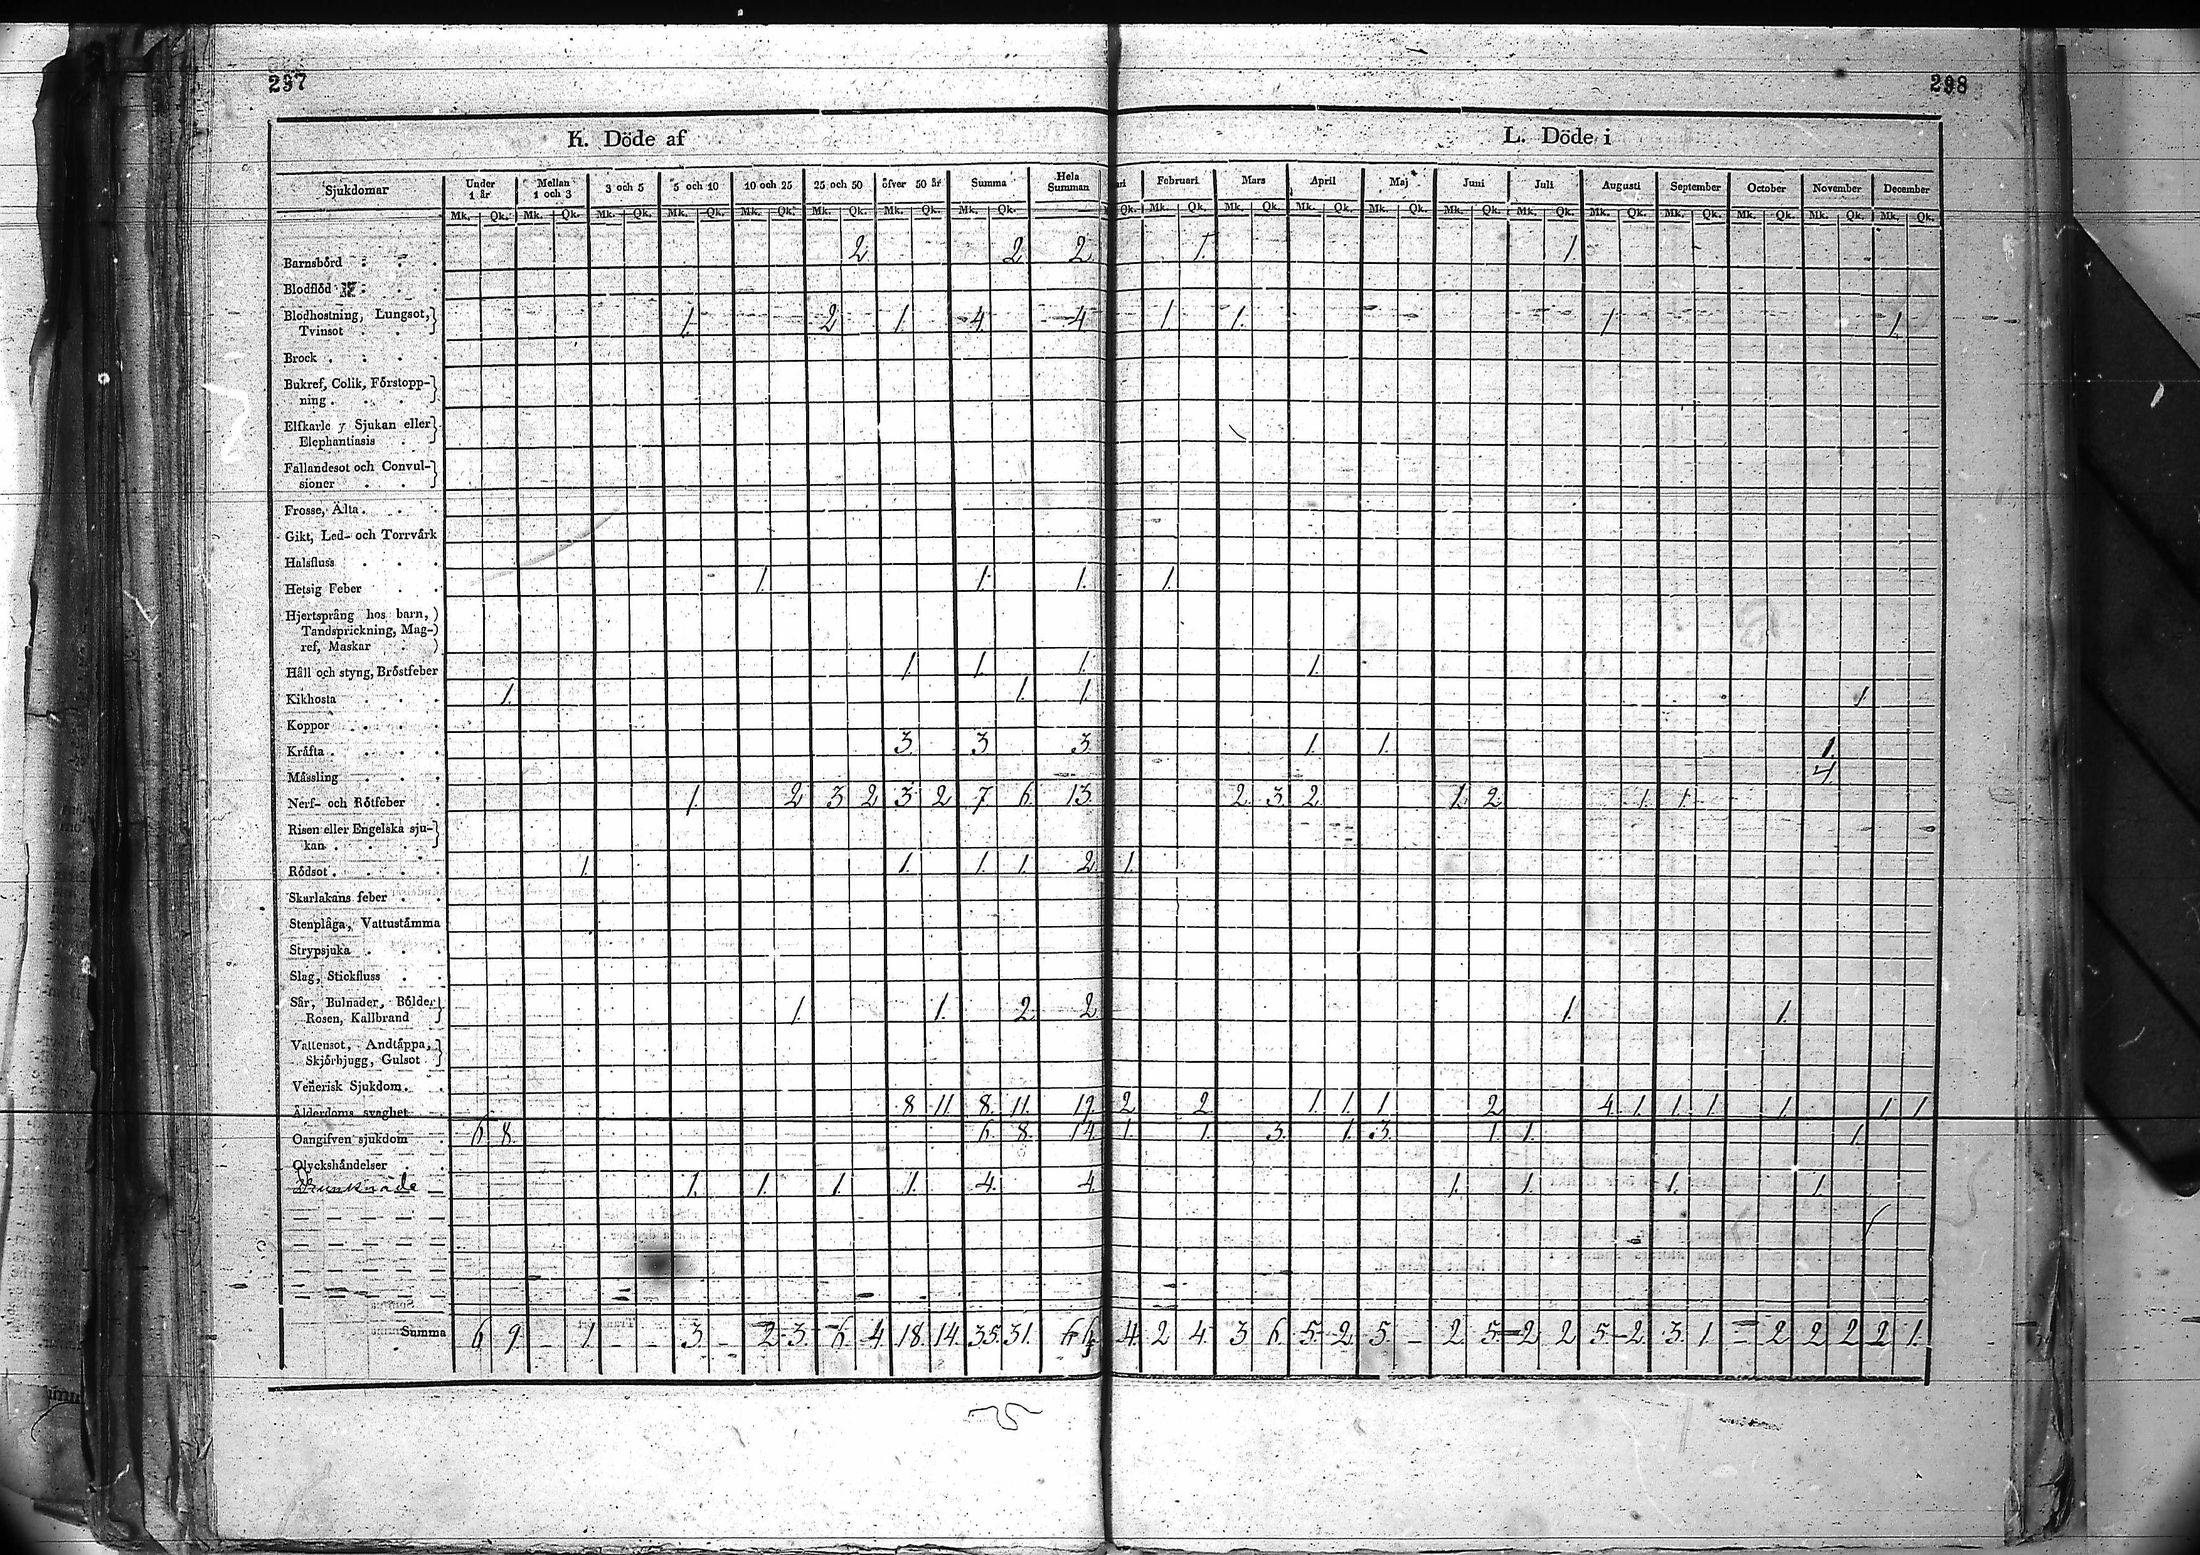 297
298
K. Döde af
L. Döde i
Sjukdomar Under 1 år Mellan 1 och 3 3 och 5 5 och 10 10 och 25 25 och 50 öfver 50 år Summa Hela Summan Februari Mars April Maj Juni Juli Augusti September October November December
Mk. Qk. Mk. Qk. Mk. Qk. Mk. Qk. Mk. Qk. Mk. Qk. Mk. Qk. Mk. Qk. Qk. Mk. Qk. Mk. Qk. Mk. Qk. Mk. Qk. Mk. Qk. Mk. Qk. Mk. Qk. Mk. Qk. Mk. Qk. Mk. Qk. Mk. Qk.
Barnsbörd 2 2 2 1. 1
Blodflöd
Blodhostning, Lungsot,
Tvinsot 1. 2 1. 4 4 1 1. 1 1
Brock
Bukref, Colik, Förstopp-
ning
Elfkarle y Sjukan eller
Elephantiasis
Fallandesot och Convul-
sioner
Frosse, Älta
Gikt, Led- och Torrvärk
Halsfluss
Hetsig Feber 1. 1. 1. 1.
Hjertsprång hos barn,
Tandsprickning, Mag-
ref, Maskar
Håll och styng, Bröstfeber 1. 1. 1. 1.
Kikhosta 1. 1. 1. 1
Koppor
Kräfta 3. 3 3. 1. 1. 1.
Mässling 4.
Nerf- och Rötfeber 1. 2 3 2 3 2 7 6. 13. 2. 3. 2 1. 2 1. 1.
Risen eller Engelska sju-
kan
Rödsot 1. 1. 1. 1. 2. 1.
Skarlakans feber
Stenplåga, Vattustämma
Strypsjuka
Slag, Stickfluss
Sår, Bulnader, Bölder
Rosen, Kallbrand 1. 1. 2 2. 1. 1.
Vattensot, Andtäppa,
Skjörbjugg, Gulsot
Venerisk Sjukdom
Ålderdoms svaghet 8 11. 8. 11. 19. 2 2 1. 1. 1. 2 4. 1. 1. 1. 1. 1. 1.
Oangifven sjukdom 6 8. 6. 8. 14. 1. 1. 3. 1. 3. 1. 1. 1.
Olyckshändelser
Drunknade 1. 1. 1. 1. 4. 4. 1. 1. 1. 1.
Summa 6 9. - 1. - - 3. - 2 3. 6. 4. 18. 14. 35. 31. 66 4. 2 4. 3 6. 5 2 5. - 2 5 2 2 5 2. 3. 1 - 2 2 2 2 1.